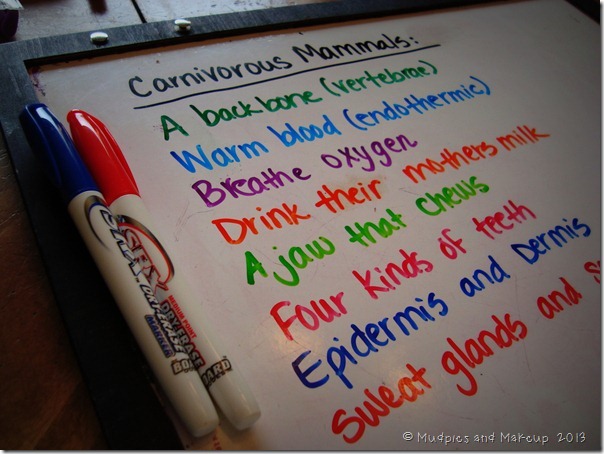 Carnivorous Mammals:
A backbone (vertebrae)
Warm blood (endothermic)
Breathe oxygen
Drink their mothers milk
A jaw that chews
Four kinds of teeth
Epidermis and Dermis
Sweat glands and
© Mudpies and Makeup 2013